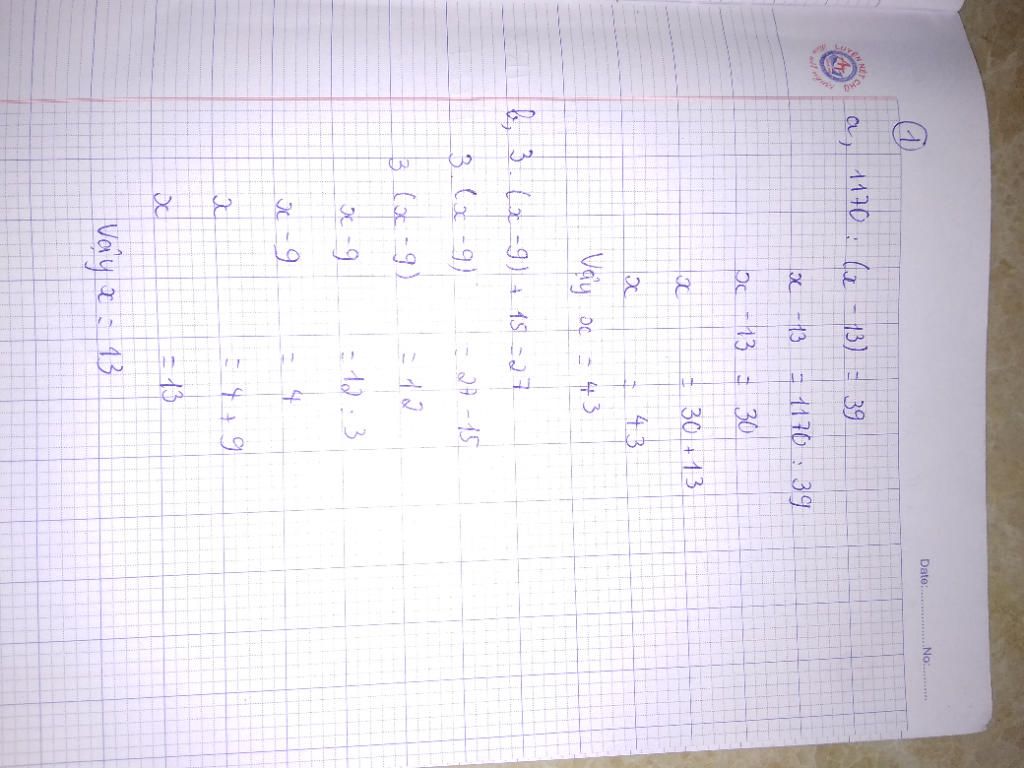 Date:............... No:...........
LUYỆN NÉT CHỮ
1
a, 1170 : (x - 13) = 39
x - 13 = 1170 : 39
x - 13 = 30
x = 30 + 13
x = 43
Vậy x = 43
b, 3 . (x - 9) + 15 = 27
3 . (x - 9) = 27 - 15
3 (x - 9) = 12
x - 9 = 12 : 3
x - 9 = 4
x = 4 + 9
x = 13
Vậy x = 13